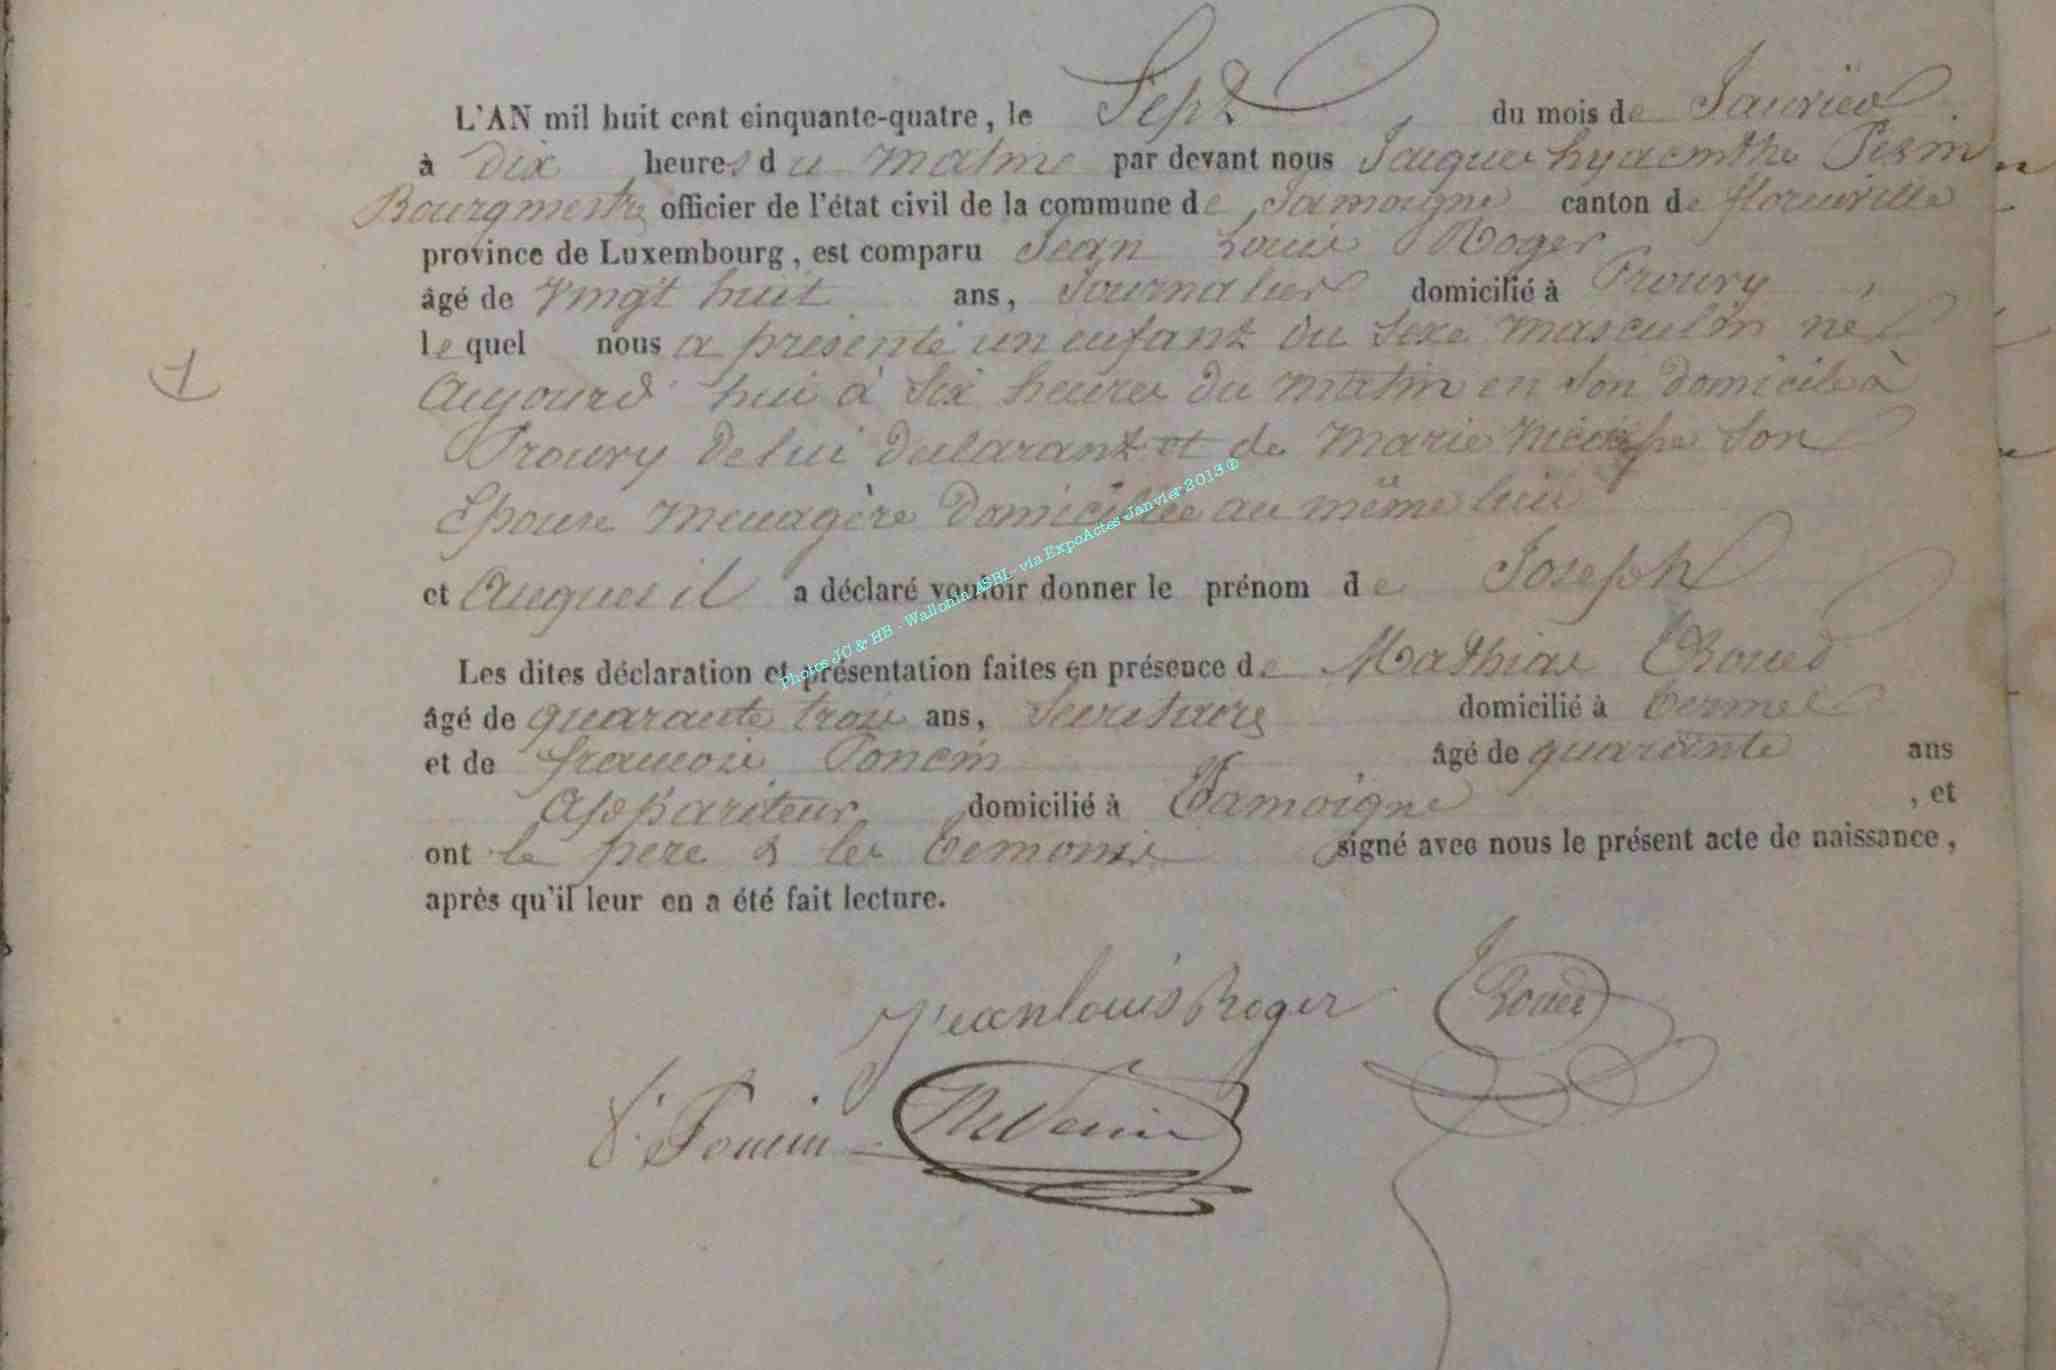 L'AN mil huit cent cinquante-quatre, le Sept du mois de Janvier
à dix heures du matin par devant nous Jacques hyacinthe
Bourgmestre officier de l'état civil de la commune de Jamoigne canton de florenville
province de Luxembourg, est comparu Jean Louis Roger
âgé de Vingt huit ans, Journalier domicilié à Prouvy
lequel nous a présenté un enfant du sexe masculin né
Aujourd'hui à Six heures du matin en son domicile à
Prouvy de lui déclarant et de Marie son
Epouse menagère domiciliée au même lieu
et Auquel il a déclaré vouloir donner le prénom de Joseph
Les dites déclaration et présentation faites en présence de Mathias
âgé de quarante trois ans, Secretaire domicilié à Termes
et de francois Poncin âgé de quarante ans
Appariteur domicilié à Jamoigne , et
ont le père & les temoins signé avec nous le présent acte de naissance,
après qu'il leur en a été fait lecture.
1
Jean louis Roger
f. Poncin
Photos JC & HB - Wallonia ASBL- via ExpoActes Janvier 2013 ®